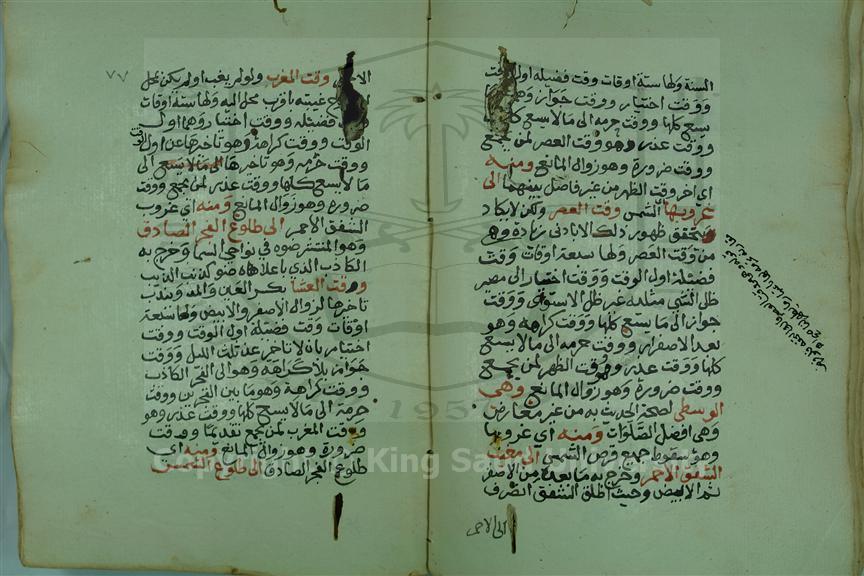 السنة ولها ستة اوقات وقت فضيله اول
ووقت اختيار ووقت جواز وهو
يسع كلها ووقت حرمه الى مالا يسع
ووقت عذر وهو وقت العصر لمن يجمع
ووقت ضرورة وهو زوال المانع ومنه
اي اخر وقت الظهر من غير فاصل بينهما الى
غروبها الشمس وقت العصر ولكن لا يكاد
يتحقق ظهور ذلك الا بادنى زيادة وهي
من وقت العصر ولها سبعة اوقات وقت
فضيلة اول الوقت ووقت اختيار الى مصير
ظل الشي مثليه غير ظل الاستواى ووقت
جواز الى ما يسع كلها ووقت كراهه وهو
بعد الاصفرار ووقت حرمه الى مالا يسع
كلها ووقت عذر وهو وقت الظهر لمن يجمع
ووقت ضرورة وهو زوال المانع وهي
الوسطى لصحة الحديث به من غير معارض
وهي افضل الصلوات ومنه اي غروبها
وهو سقوط جميع قرص الشمس الى مغيب
الشفق الاحمر وخرج به ما بعده من الاصفر
ثم الابيض وحيث اطلق الشفق انصرف
الى الاحمر
٧٧
وقت المغرب ولو لم يغب او لم يكن بمحل
غيبته باقرب محل اليه ولها ستة اوقات
فضيله ووقت اختيار وهما اول
الوقت ووقت كراهة وهو تاخرها عن اول
الوقت
ووقت حرمه وهو تاخرها الى مالا يسع الى
مالا يسع كلها ووقت عذر لمن يجمع ووقت
ضروره وهو زوال المانع ومنه اي غروب
الشفق الاحمر الى طلوع الفجر الصادق
وهو المنتشر ضوه في نواحي السما وخرج به
الكاذب الذي باعلاه ضو كذنب الذيب
وقت العشا بكسر العين والمد ويندب
تاخرها لزوال الاصفر والابيض ولها سبعة
اوقات وقت فضيلة اول الوقت ووقت
اختيار بان لا تاخر عن ثلث الليل ووقت
جواز بلا كراهة وهو الى الفجر الكاذب
ووقت كراهة وهو ما بين الفجرين ووقت
حرمة الى مالا يسع كلها ووقت عذر وهو
وقت المغرب لمن يجمع تقديما ووقت
ضرورة وهو زوال المانع ومنه اي
طلوع الفجر الصادق الى طلوع الشمس
1957
King Saud